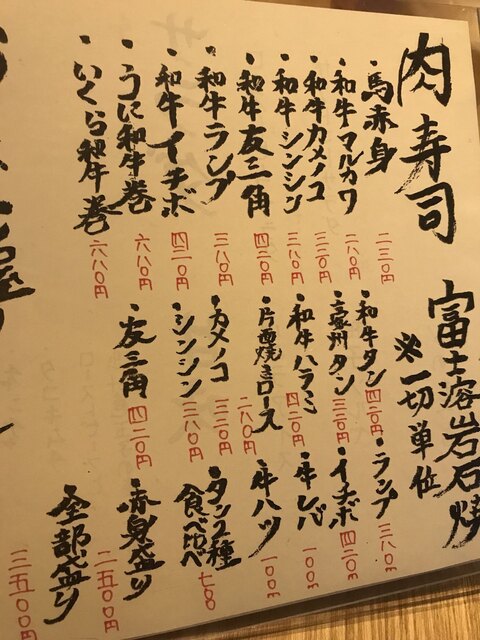 肉寿司
・馬赤身 二三〇円
・和牛マルカワ 二八〇円
・和牛カメノコ 三三〇円
・和牛シンシン 三八〇円
・和牛友三角 四三〇円
・和牛ランプ 三八〇円
・和牛イチボ 四三〇円
・うに和牛巻 六八〇円
・いくら和牛巻 六八〇円
富士溶岩石焼
※一切単位
・和牛タン 四三〇円
・豪州タン 三三〇円
・和牛ハラミ 四三〇円
・片面焼きロース 二八〇円
・カメノコ 三三〇円
・シンシン 三八〇円
・友三角 四三〇円
・ランプ 三八〇円
・イチボ 四三〇円
・牛レバ 一〇〇円
・牛ハツ 一〇〇円
・タン2種
食べ比べ 七〇〇
・赤身盛り 二五〇〇円
全部盛り 三五〇〇円